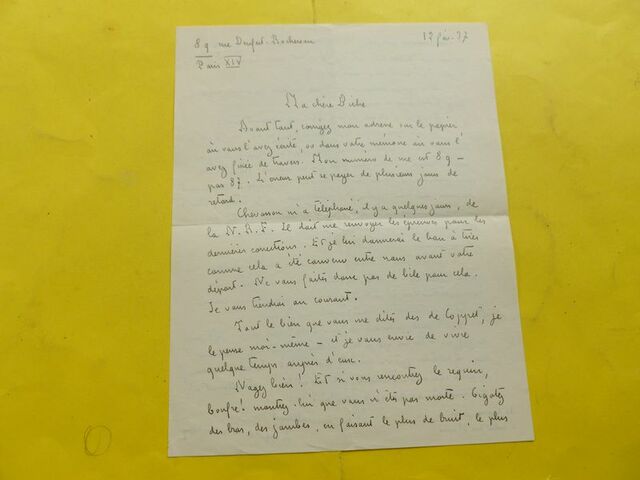 89 rue Denfert-Rochereau
Paris XIV
12 fév. 37
Ma chère Biche
Avant tout, corrigez mon adresse sur le papier
où vous l'avez écrite, ou dans votre mémoire où vous l'
avez fixée de travers. Mon numéro de rue est 89 -
pas 87. L'erreur peut se payer de plusieurs jours de
retard.
Chevasson m'a téléphoné, il y a quelques jours, de
la N.R.F. Il doit me renvoyer les épreuves pour les
dernières corrections. Et je lui donnerai le bon à tirer
comme cela a été convenu entre nous avant votre
départ. Ne vous faites donc pas de bile pour cela.
Je vous tiendrai au courant.
Tout le bien que vous me dites des de Coppet, je
le pense moi-même - et je vous envie de vivre
quelque temps auprès d'eux.
Nagez bien! Et si vous rencontrez le requin,
montrez-lui que vous n'êts pas morte. Gigotez
des bras, des jambes, en faisant le plus de bruit, le plus